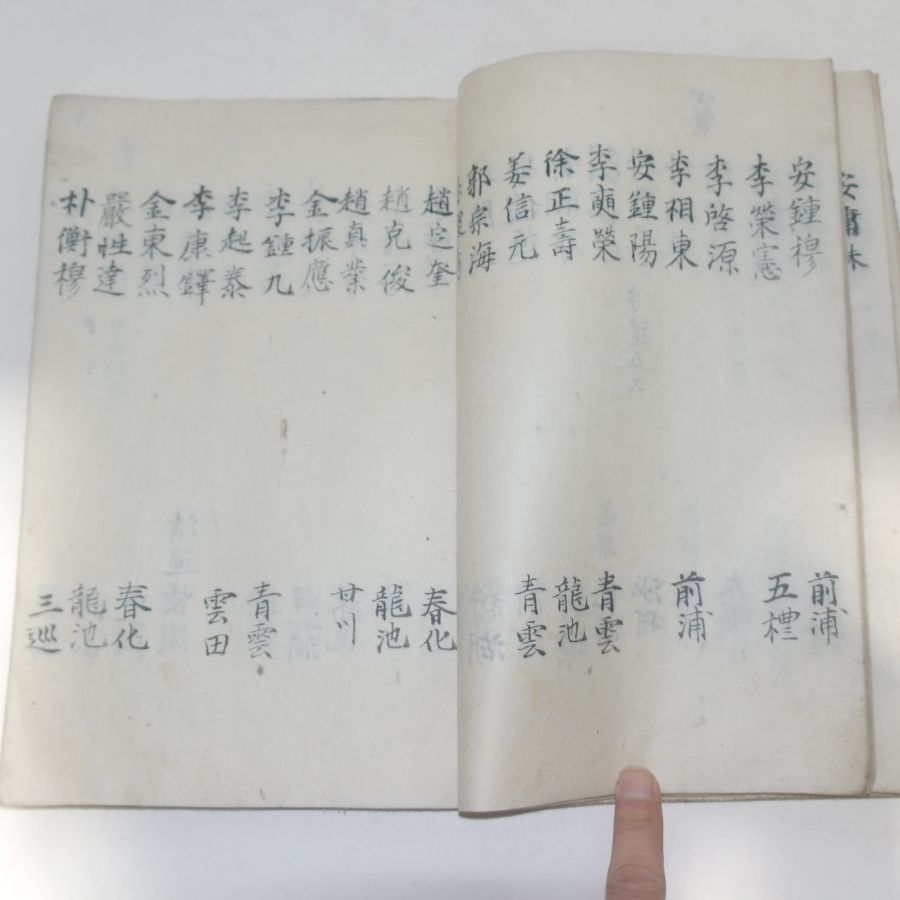 安庸
安鍾穆 前浦
李榮憲 五禮
李啓源
李相東 前浦
安鍾陽
李奭榮 青雲
徐正壽 龍池
姜信元 青雲
郭宗海
趙定奎 春化
趙克俊 龍池
趙眞業 甘川
金振應
李鍾九 青雲
李起泰 雲田
李康鐸
金東烈 春化
嚴性達 龍池
朴衡穆 三巡